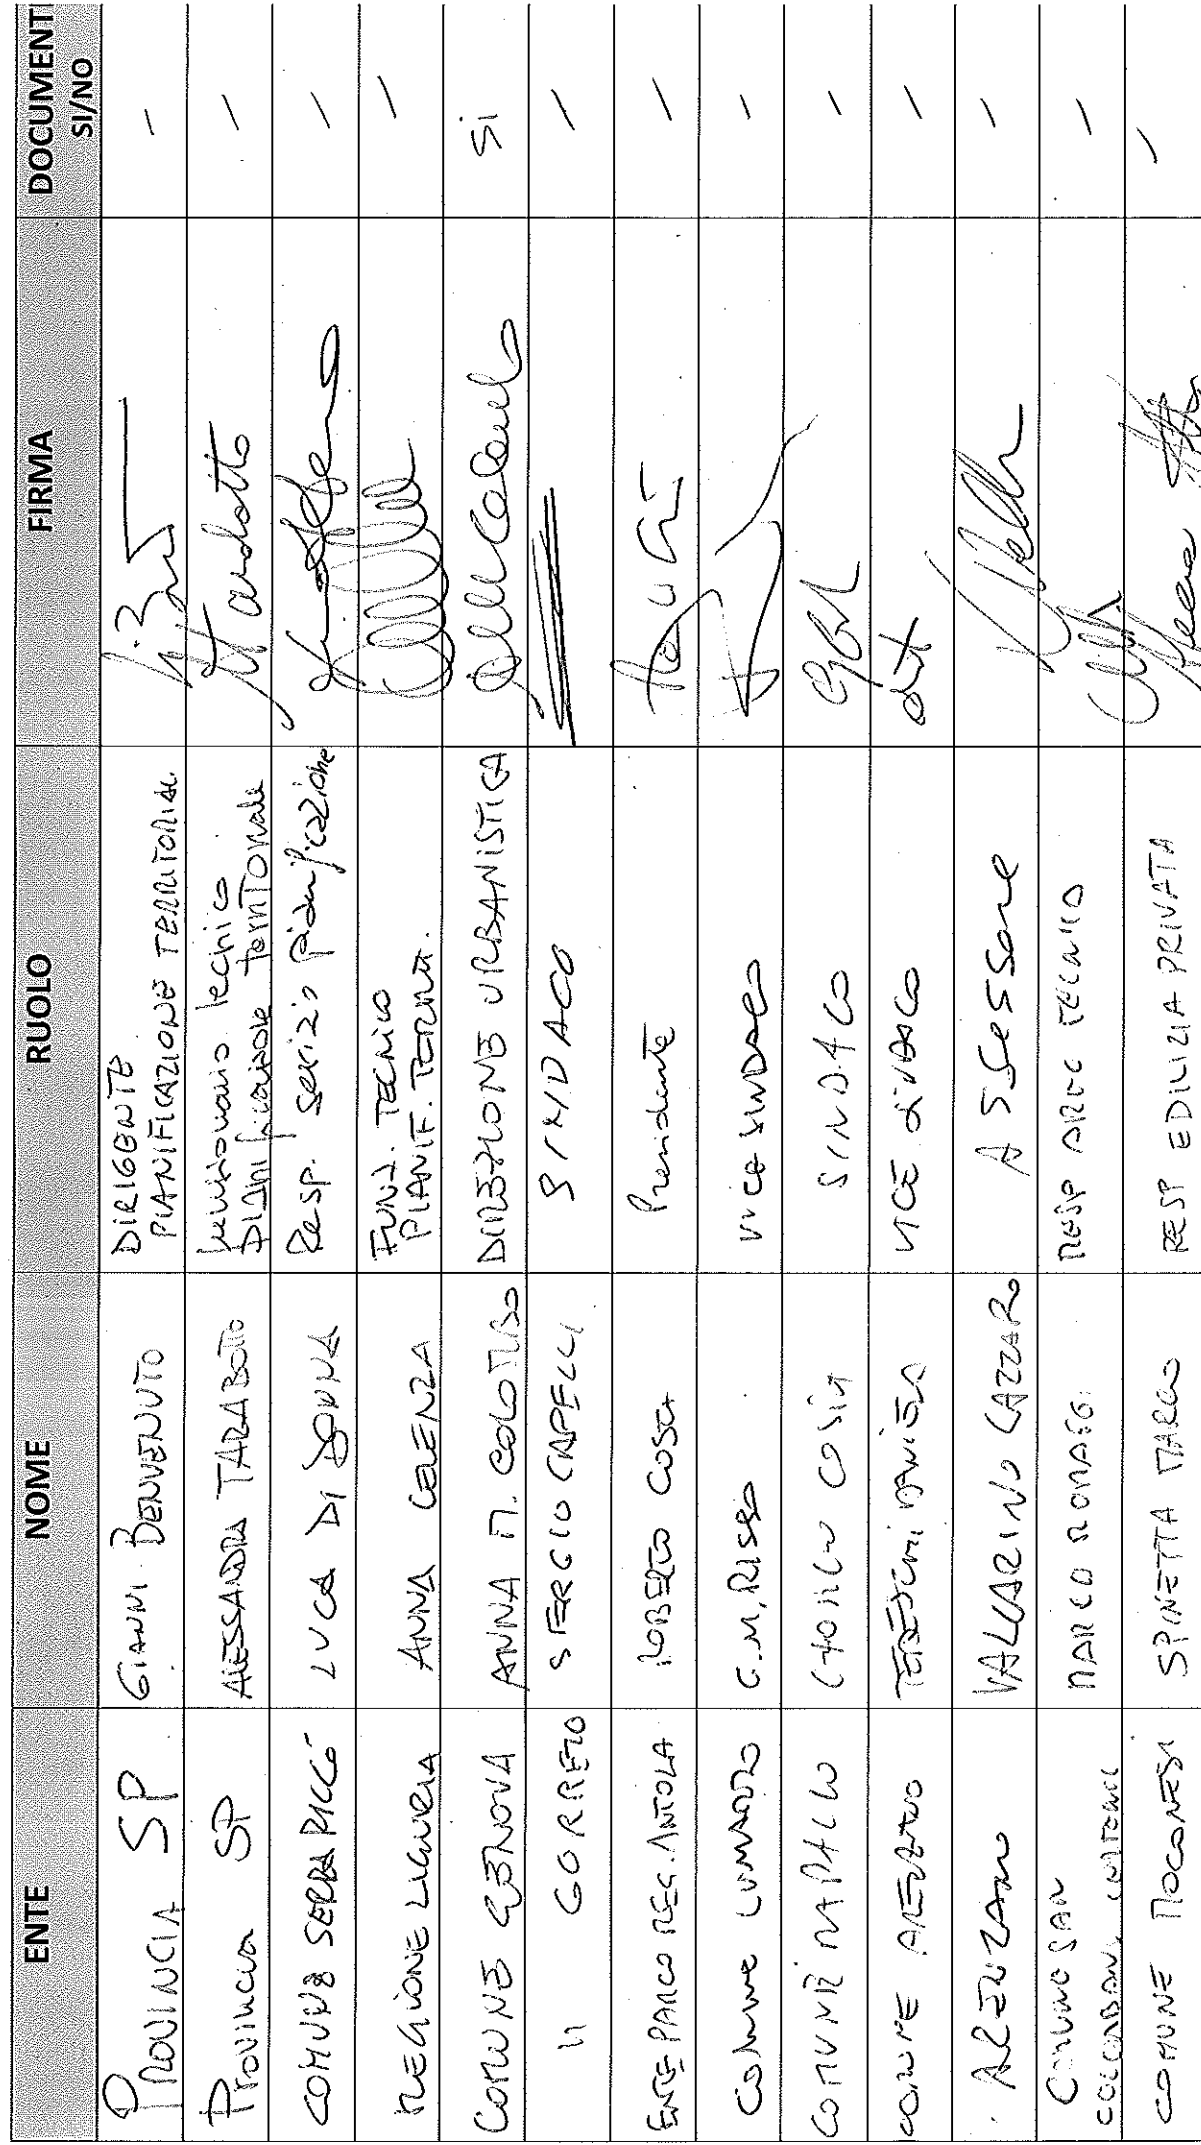 ENTE NOME RUOLO FIRMA DOCUMENTI SI/NO
PROVINCIA SP GIANNI BENVENUTO DIRIGENTE PIANIFICAZIONE TERRITORIALE -
Provincia SP ALESSANDRA TARABOTTO funzionario tecnico pianificazione territoriale -
COMUNE SERRA RICCÒ LUCA DI DONNA Resp. servizio pianificazione -
REGIONE LIGURIA ANNA CELENZA FUNZ. TECNICO PIANIF. TERRIT. -
COMUNE GENOVA ANNA M. COLOMBO DIREZIONE URBANISTICA Si
" GORRETO SERGIO CAPELLI SINDACO -
ENTE PARCO REG. ANTOLA ROBERTO COSTA Presidente -
Comune LUMARZO G.M. RISSO VICE SINDACO -
COMUNE SINDACO -
COMUNE ARENZANO VICE SINDACO -
ARENZANO ASSESSORE -
COMUNE SAN MARCO RESP AREA TECNICO -
COMUNE MOCONESI SPINETTA MARCO RESP EDILIZIA PRIVATA -